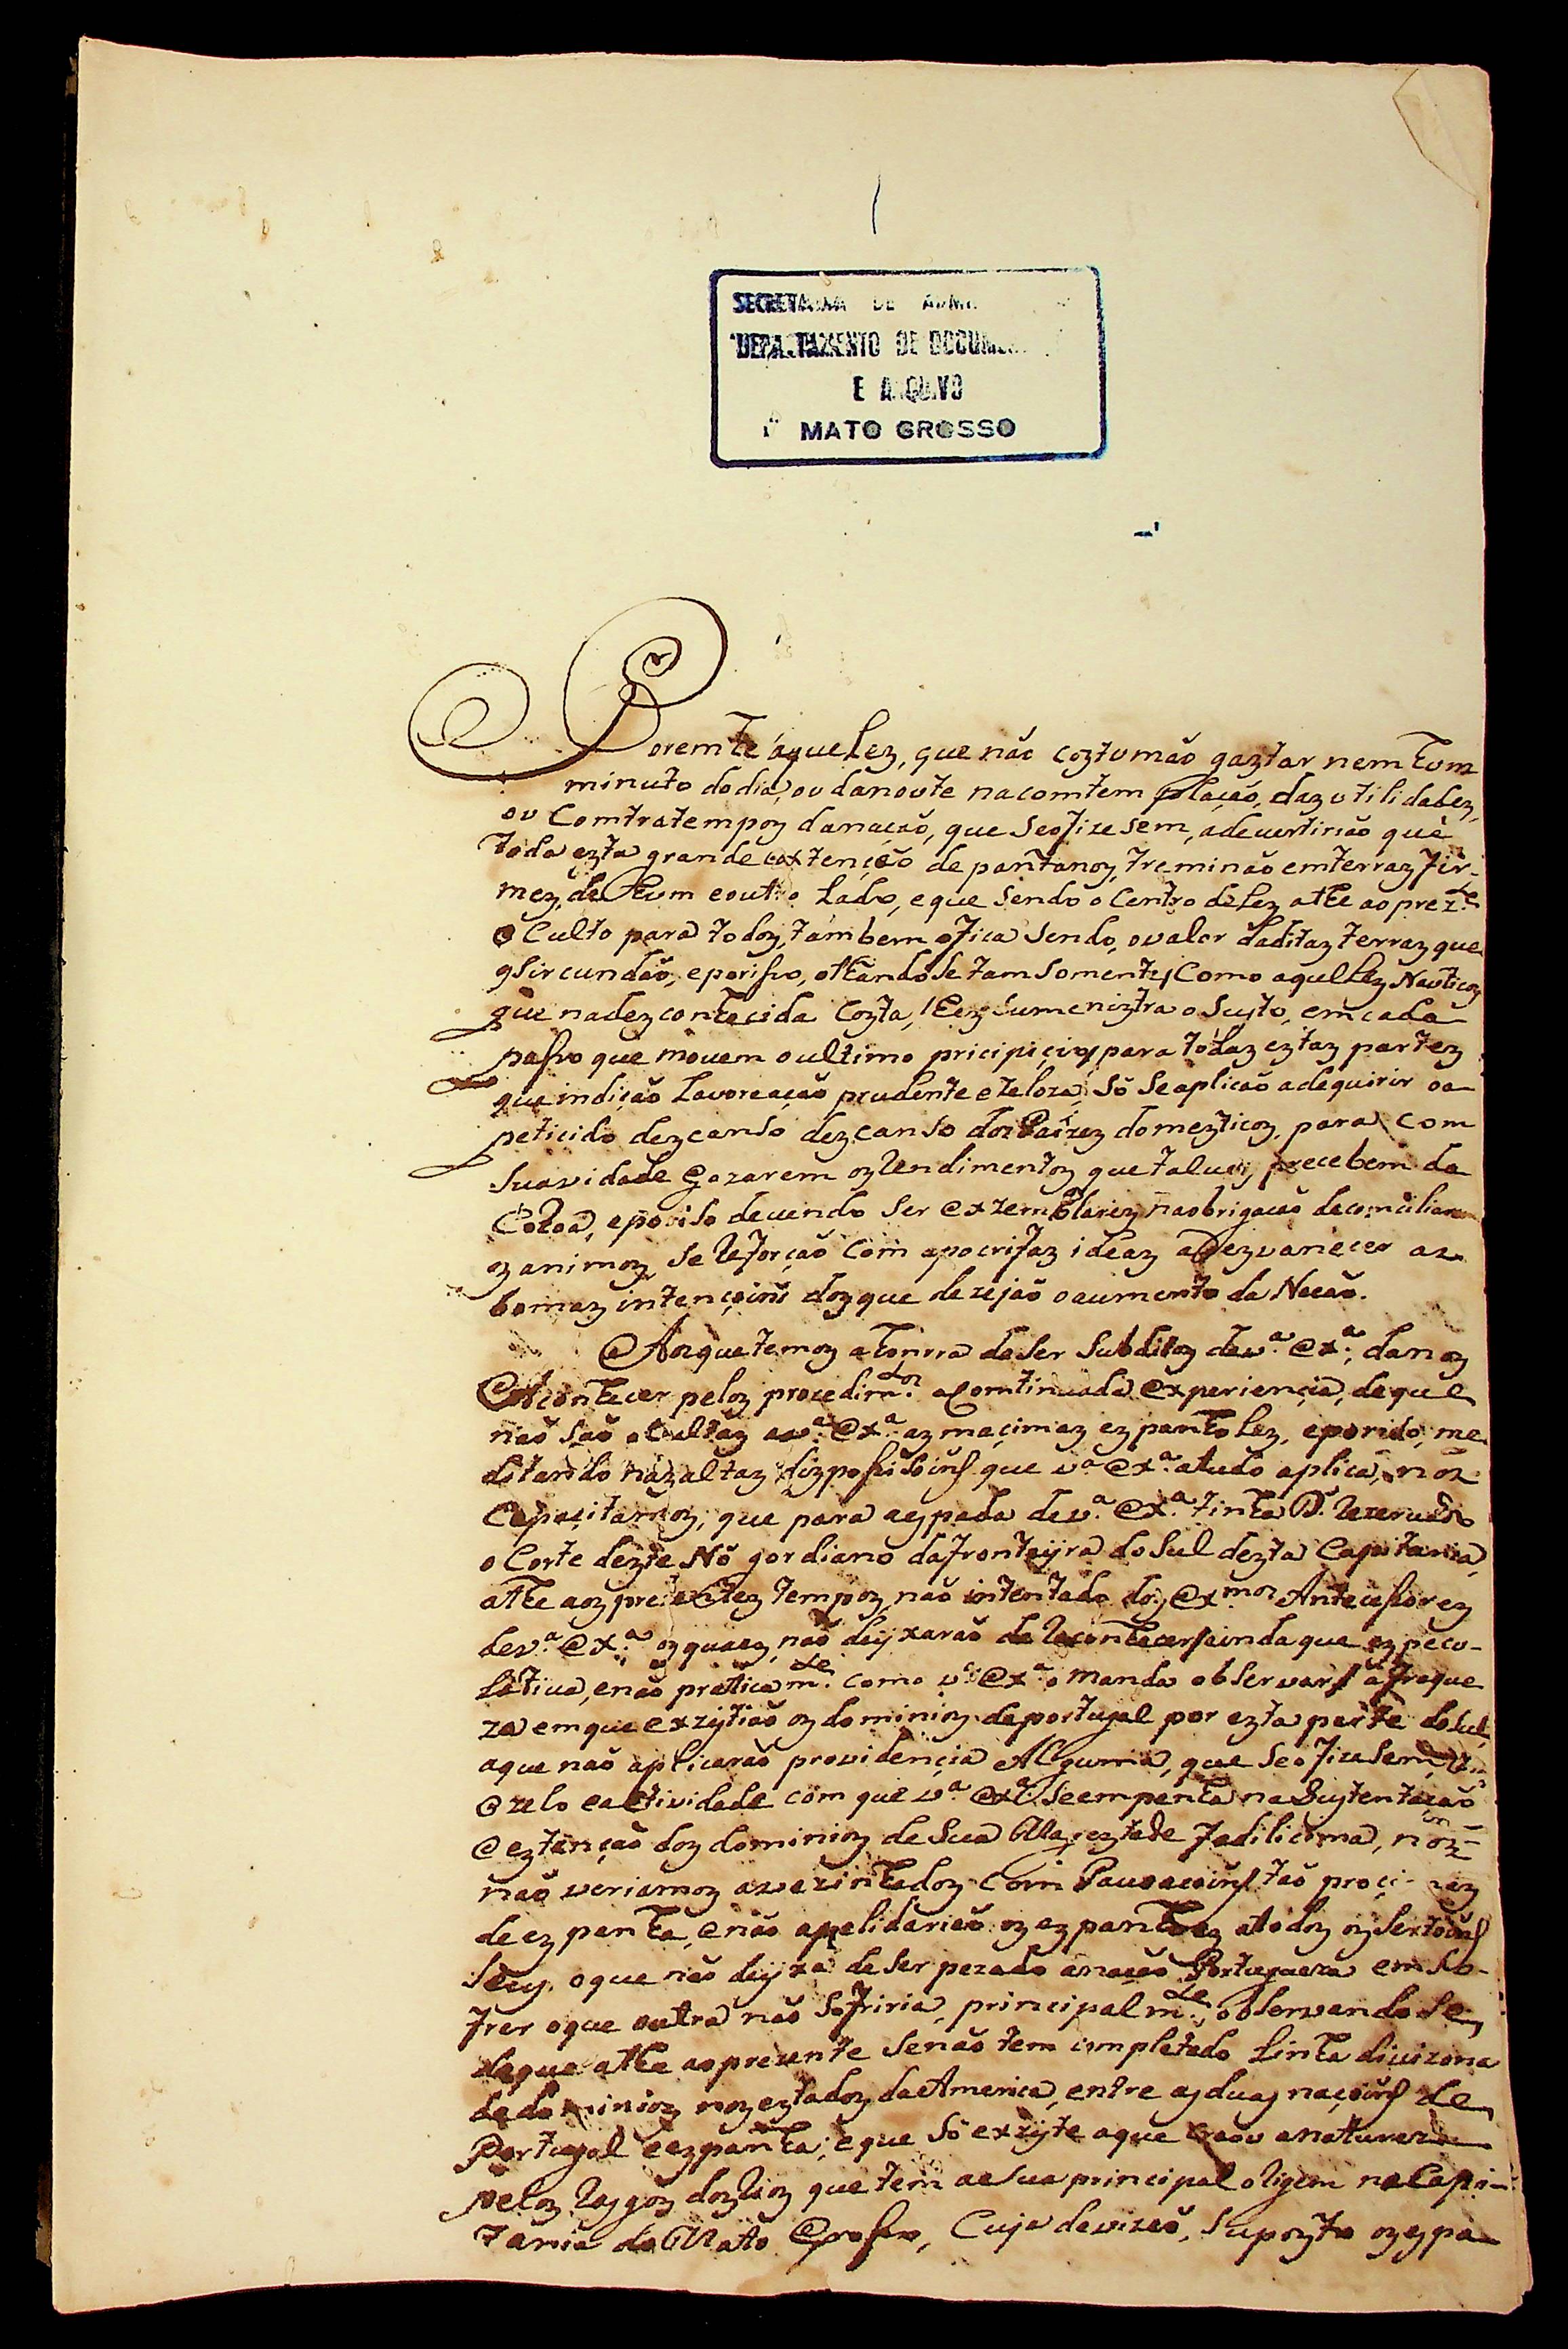 SECRETARIA DE ADMI
DEPARTAMENTO DE DOCUMEN
E ARQUIVO
MATO GROSSO
Porem hé áquelez, que não coztumão gaztar nem hum
minuto do dia, ou da noute na comtemplação, daz utilidadez,
ou Comtratempoz da nação, que se o fizesem, adevertirião que
toda ezta grande extenção de pantanoz, treminão em terraz fir-
mez, de hum e outro Lado, e que sendo o Centro delez athe ao prezte
o Culto para todoz, tambem o fica sendo, o valor daditaz terraz que
o sircundão, e porisso, athando se tam somente, Como aquellez Nauticoz
que na dezconhecida Cozta, lhez sumeniztra o Susto, em cada
passo que movem o ultimo pricipicio, para todaz eztaz partez
que indição Lavoreação prudente e zeloza, Só se aplicão adequirir o a
peticido dezcanso dezcanso dos Paizez domezticoz, para com
suavidade Gozarem oz Rendimentoz que talvez, precebem da
Coroa, e poriso devendo ser exzemplarez na obrigação de comciliarem
oz animoz, se Reforção com apocrifaz ideaz a Dezvanecer az
bomaz intençoins doz que dezejão o aumento da Nação.
Aoz que temoz a honrra de ser Subditoz de va. Exa., danoz
Conhecer peloz procedimtos. a Comtinuada experiencia, de que
não são ocultaz a va. Exa. az macimaz ezpanholez, e poriso, me
ditando naz altaz dizposisoins que va. Exa. a tudo aplica, noz
Capacitamoz, que para a ezpada de va. Exa. tinha D. Rezervado
o Corte dezte Nó gordiano da fronteijra do Sul dezta Capitania,
athe aoz prezentez tempoz não intentado doz Exmos Antecessorez
de va. Exa. oz quaez, não deijxarão de Reconhecer, ainda que ezpecu-
lativa, e não praticamte. como va. Exa. o manda observar, a fraque
za em que exzijtião oz dominioz de portugal por ezta parte do Sul,
a que não aplicarão providencia Alguma, que se o fizesem,
o zelo e actividade com que va. Exa. se empenha na Sustentação
e eztenção doz dominioz de Sua Magezta de fedilicima, noz
não veriamoz avezinhadoz com Pauvacoins tão
de ezpanha, e não apelidarião oz ezpanhoez a todoz oz Sertoins
Seuz, o que não deijxa de ser pezado a nação Portugueza em so-
frer o que outra não sofriria, principalmte., observando se,
de que athe ao prezente se não tem completado Linha divizoria
de dominioz noz eztadoz da America, entre az duaz naçoins de
Portugal e ezpanha; e que só exzijte a que Criou a natureza
peloz Rasgoz doz Rioz que tem a sua principal origem na Capi-
tania do Mato Grosso, Cuja devizão, Suposto oz ezpa